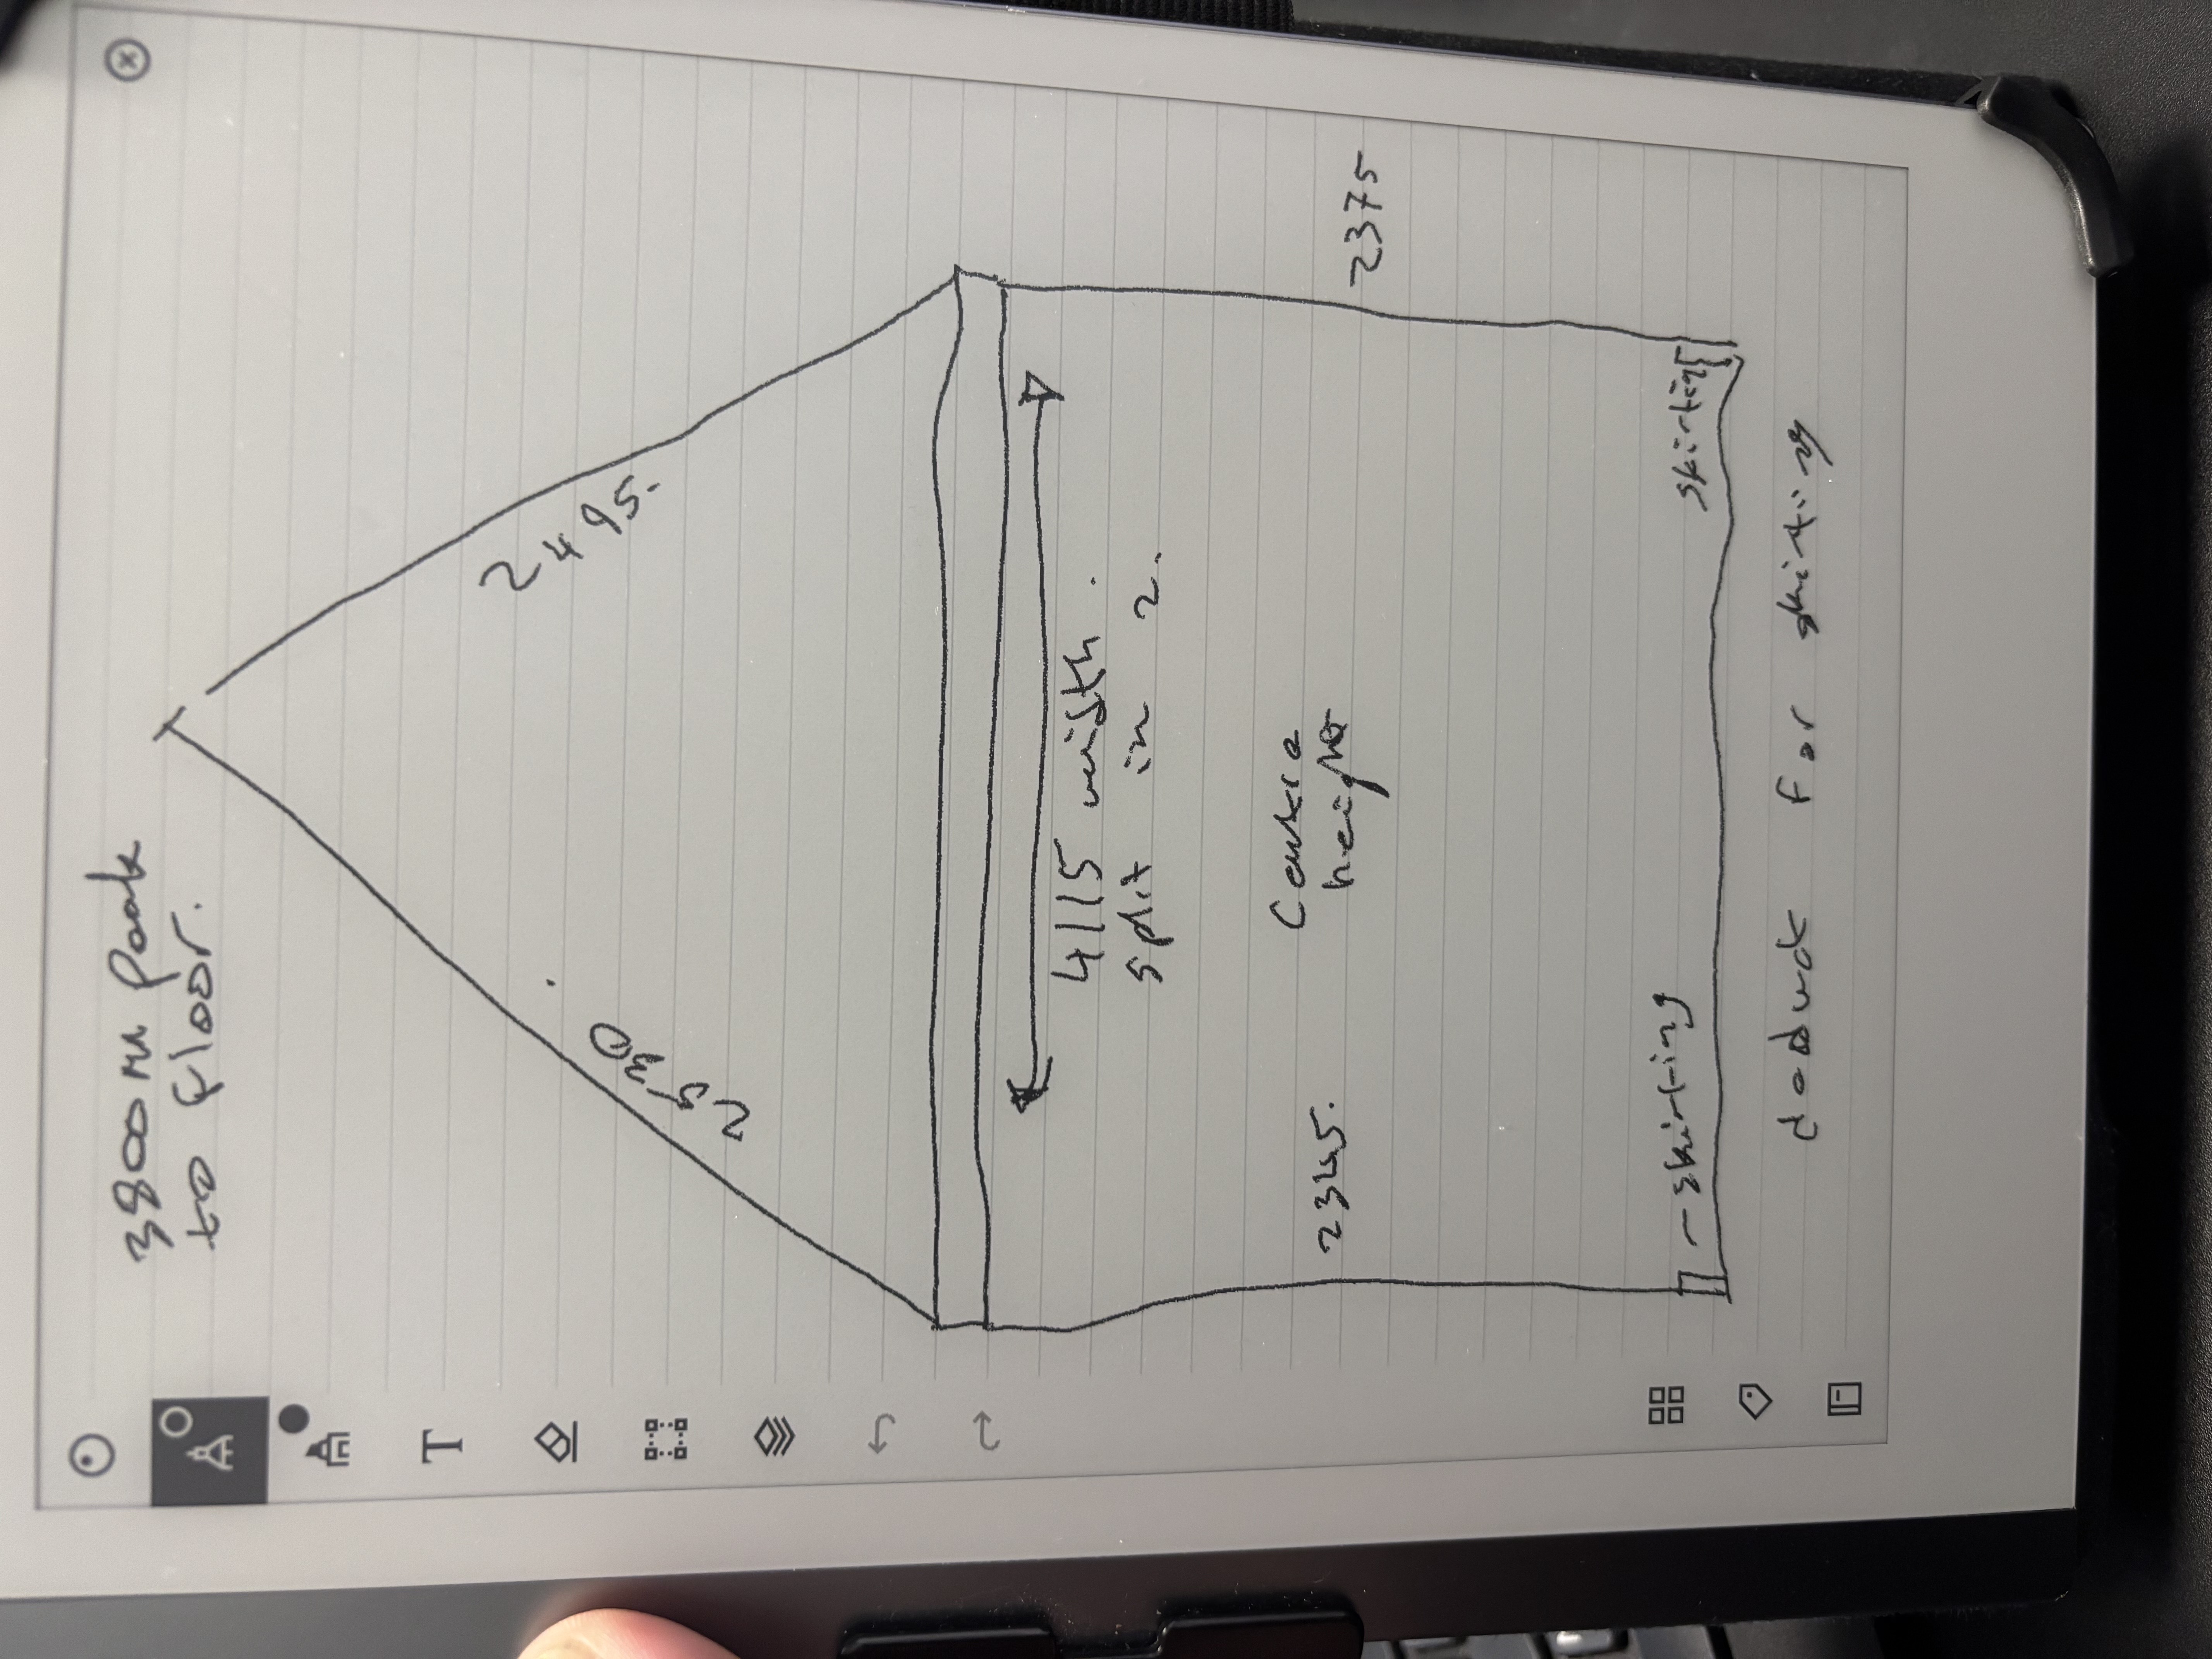 3800m Peak
to floor.
2530
2495.
4115 width.
split in 2.
Centre
height
2345.
2375
skirting
skirting
deduct for skirting
T